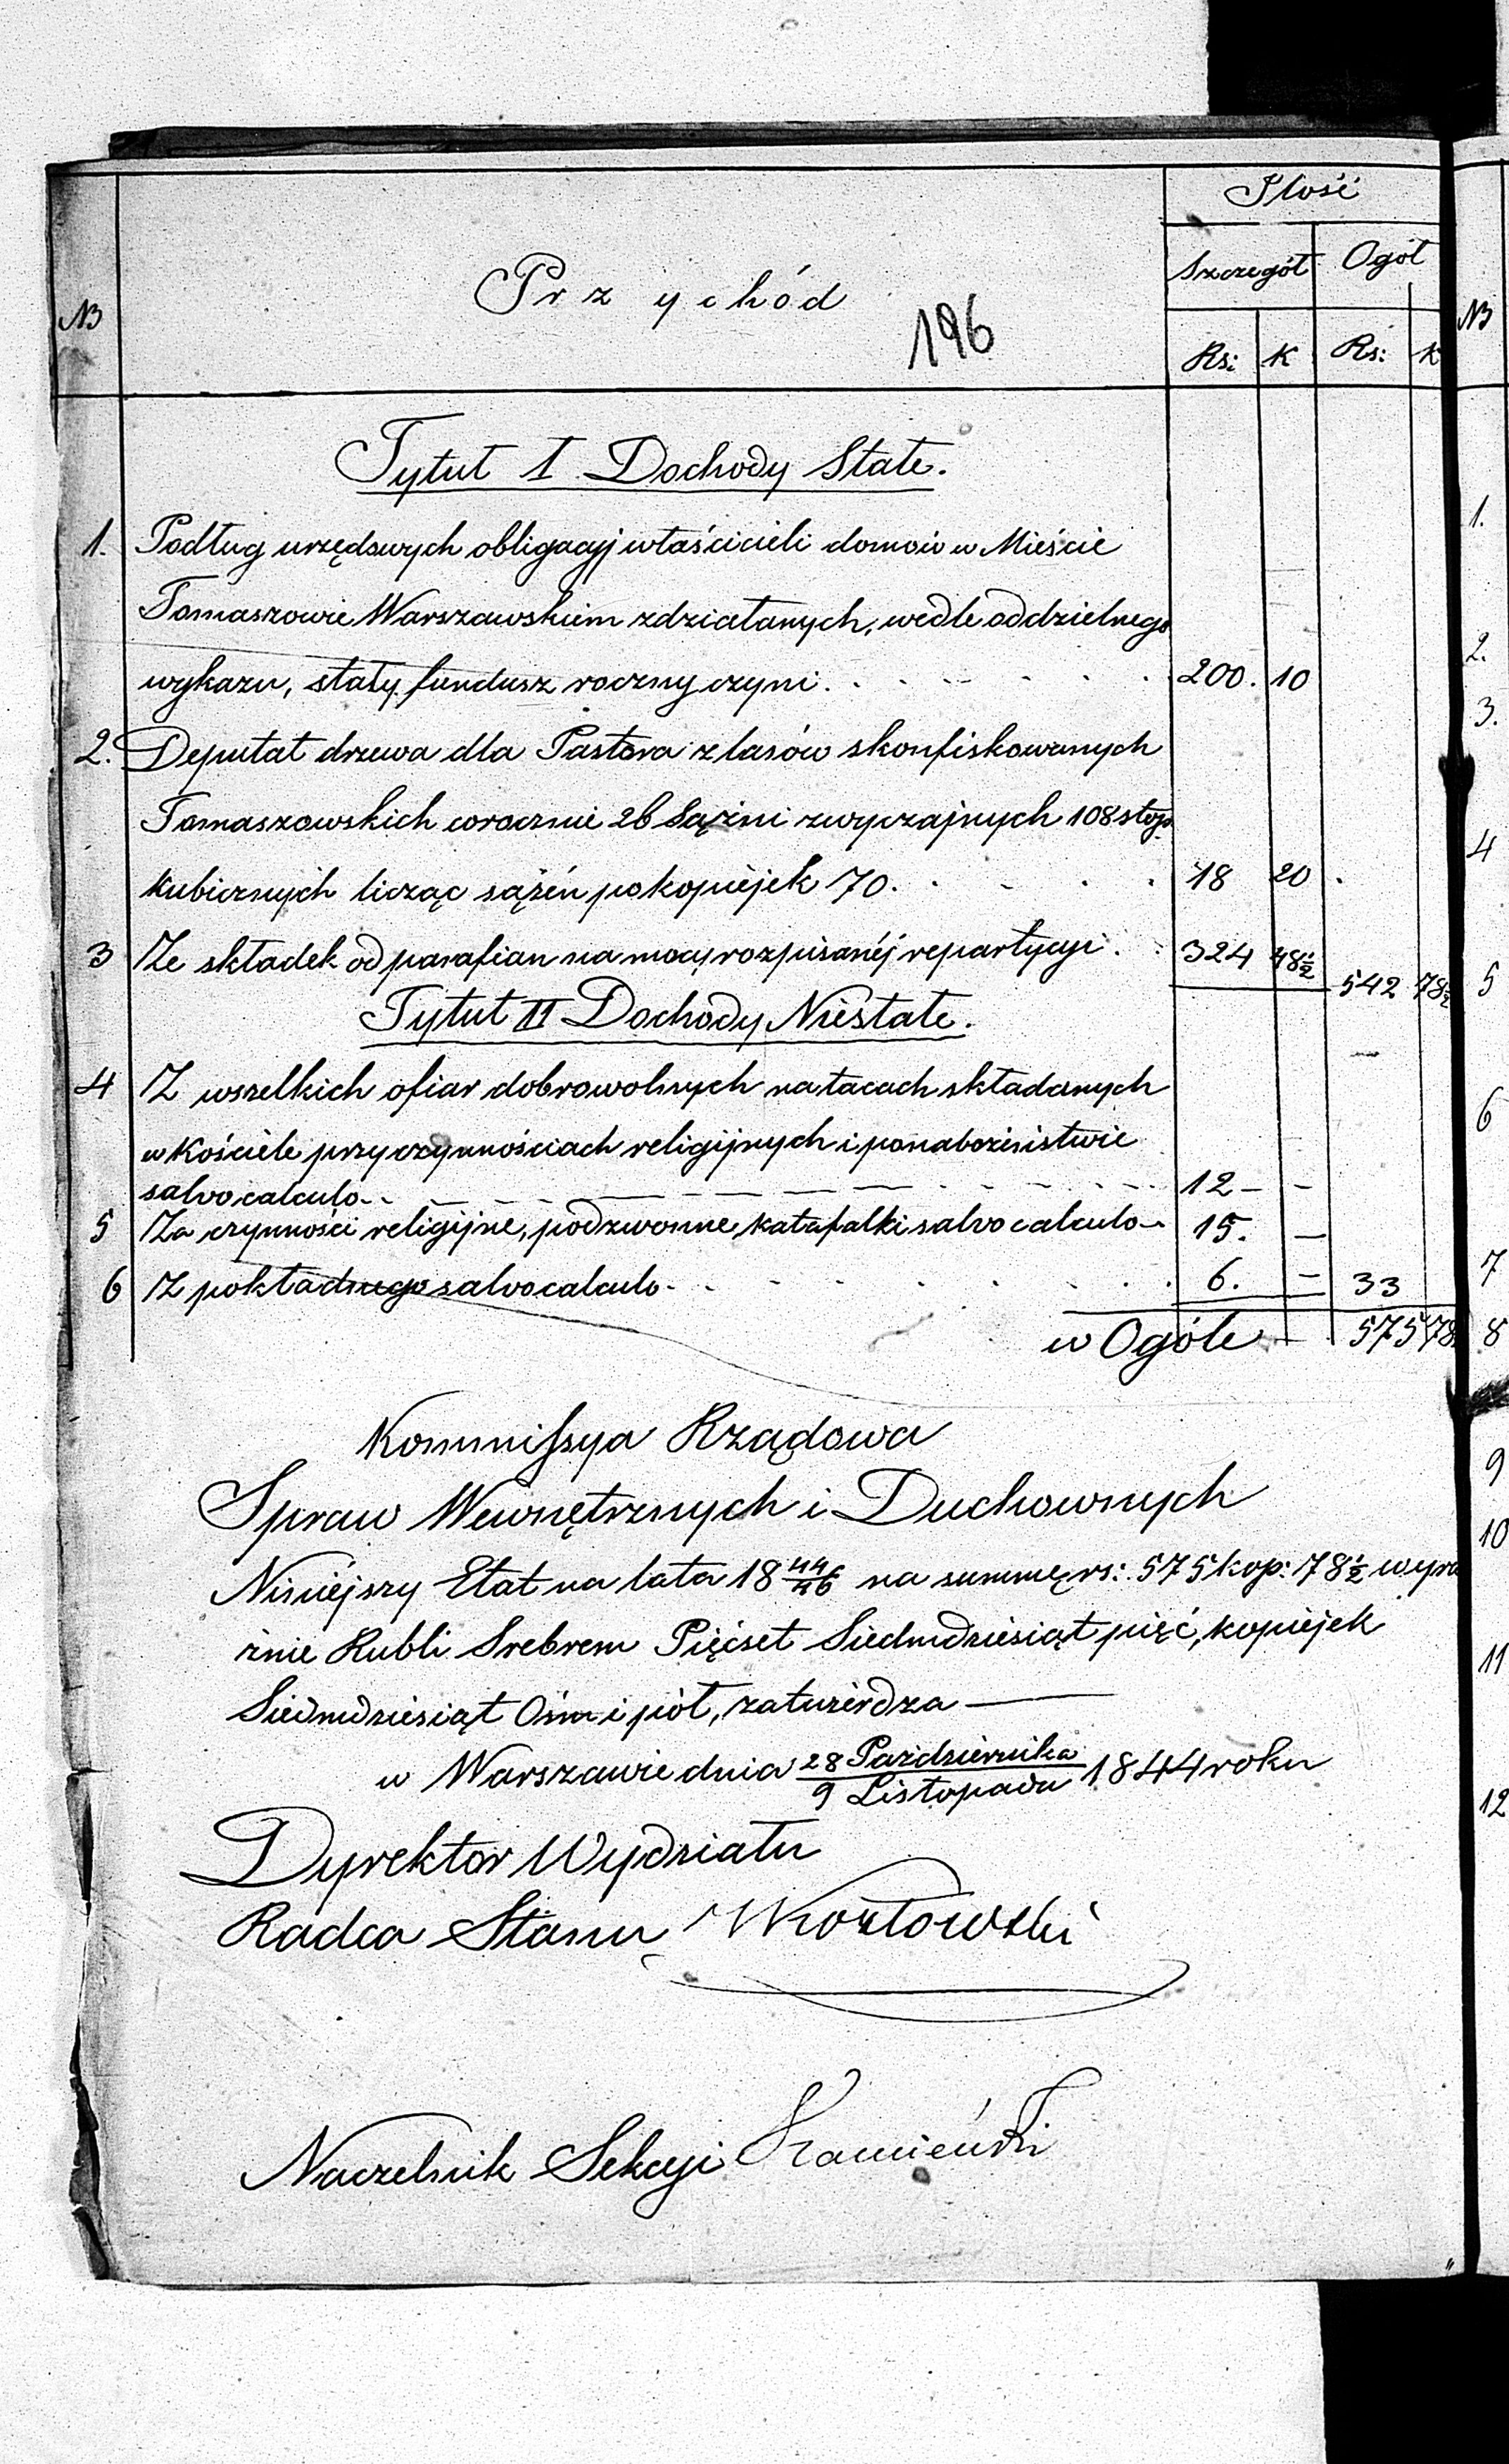 Ilość
Szczegół Ogół
Przychód
196
NB
Rs: K Rs: K
NB
Tytuł I Dochody Stałe.
1. Podług urzędowych obligacyj właścicieli domów w Mieście
Tomaszowie Warszawskiem zdziałanych, wedle oddzielnego
wykazu, stały fundusz roczny czyni. 200. 10
2. Deputat drzewa dla Pastora z lasów skonfiskowanych
Tomaszowskich corocznie 26 Sążni zwyczajnych 108 stóp
Kubicznych licząc sążeń po kopiejek 70. 18 20
3 Ze składek od parafian na mocy rozpisanéj repartycyi. 324 48½ 542 78½
Tytuł II Dochody Niestałe.
4 Z wszelkich ofiar dobrowolnych na tacach składanych
w Kościele przy czynnościach religijnych i po nabożeństwie
salvo calculo 12 – –
5 Za czynności religijne, podzwonne, katafalki salvo calculo 15. –
6 Z pokładnego salvo calculo 6. – 33
w Ogóle 575 78
Kommissya Rządowa
Spraw Wewnętrznych i Duchownych
Niniejszy Etat na lata 18 44/46 na summę rs: 575 kop: 78½ wyra
źnie Rubli Srebrem Pięćset Siedmdziesiąt pięć, kopiejek
Siedmdziesiąt Ośm i pół, zatwierdza
w Warszawie dnia 28 Października / 9 Listopada 1844 roku
Dyrektor Wydziału
Radca Stanu Kozłowski
Naczelnik Sekcyi Kamieński
1.
2.
3.
4
5
6
7
8
9
10
11
12